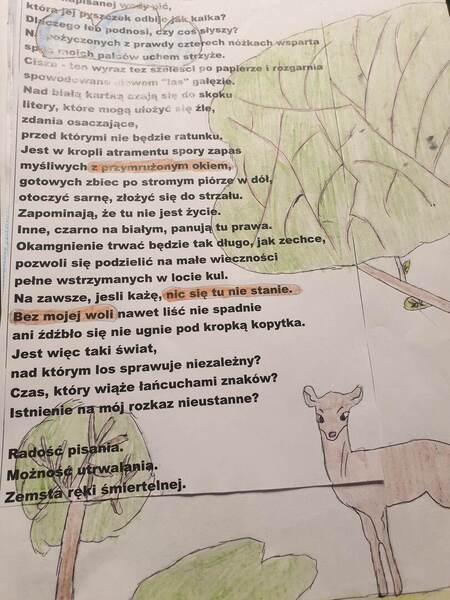 napisanej wody pić,
która jej pyszczek odbije jak kalka?
Dlaczego łeb podnosi, czy coś słyszy?
Na pożyczonych z prawdy czterech nóżkach wsparta
spod moich palców uchem strzyże.
Cisza - ten wyraz też szeleści po papierze i rozgarnia
spowodowane słowem "las" gałęzie.
Nad białą kartką czają się do skoku
litery, które mogą ułożyć się źle,
zdania osaczające,
przed którymi nie będzie ratunku.
Jest w kropli atramentu spory zapas
myśliwych z przymrużonym okiem,
gotowych zbiec po stromym piórze w dół,
otoczyć sarnę, złożyć się do strzału.
Zapominają, że tu nie jest życie.
Inne, czarno na białym, panują tu prawa.
Okamgnienie trwać będzie tak długo, jak zechce,
pozwoli się podzielić na małe wieczności
pełne wstrzymanych w locie kul.
Na zawsze, jesli każę, nic się tu nie stanie.
Bez mojej woli nawet liść nie spadnie
ani źdźbło się nie ugnie pod kropką kopytka.
Jest więc taki świat,
nad którym los sprawuje niezależny?
Czas, który wiąże łańcuchami znaków?
Istnienie na mój rozkaz nieustanne?
Radość pisania.
Możność utrwalania.
Zemsta ręki śmiertelnej.